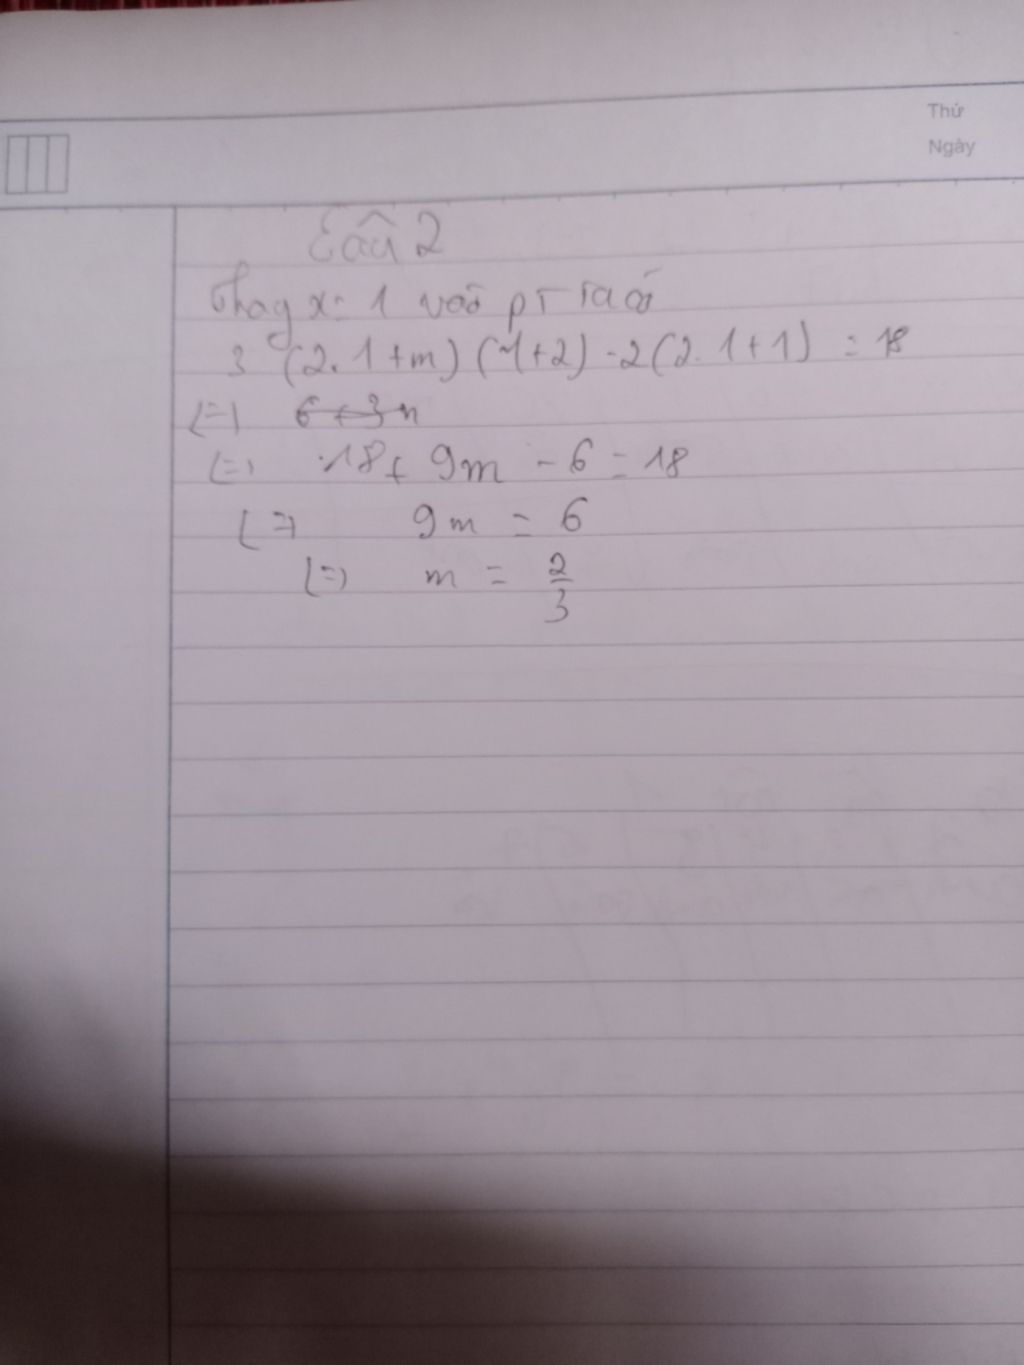 Thứ
Ngày
Câu 2
Thay x = 1 vào pt ta có
3 (2.1+m) (1+2) - 2(2.1+1) = 18
(=) 6 + 3m
(=) 18 + 9m - 6 = 18
(=) 9m = 6
(=) m = 2/3